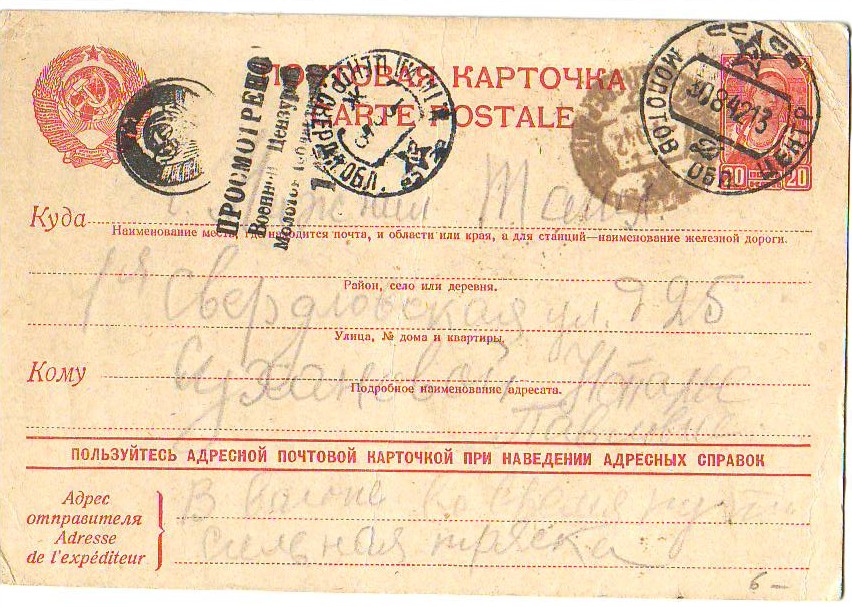 ПОЧТОВАЯ КАРТОЧКА
CARTE POSTALE
ПРОСМОТРЕНО
Военной Цензурой
Молотов
МОЛОТОВ ОБЛ. ЦЕНТР
30 8 42 13
20 20
Куда
Наименование места, где находится почта, и области или края, а для станций—наименование железной дороги.
Район, село или деревня.
1я Свердловская ул. д 25
Улица, № дома и квартиры.
Кому
Сухановой
Подробное наименование адресата.
Павловне
ПОЛЬЗУЙТЕСЬ АДРЕСНОЙ ПОЧТОВОЙ КАРТОЧКОЙ ПРИ НАВЕДЕНИИ АДРЕСНЫХ СПРАВОК
Адрес
отправителя
Adresse
de l'expéditeur
В вагоне во время пути
сильная тряска
6 —